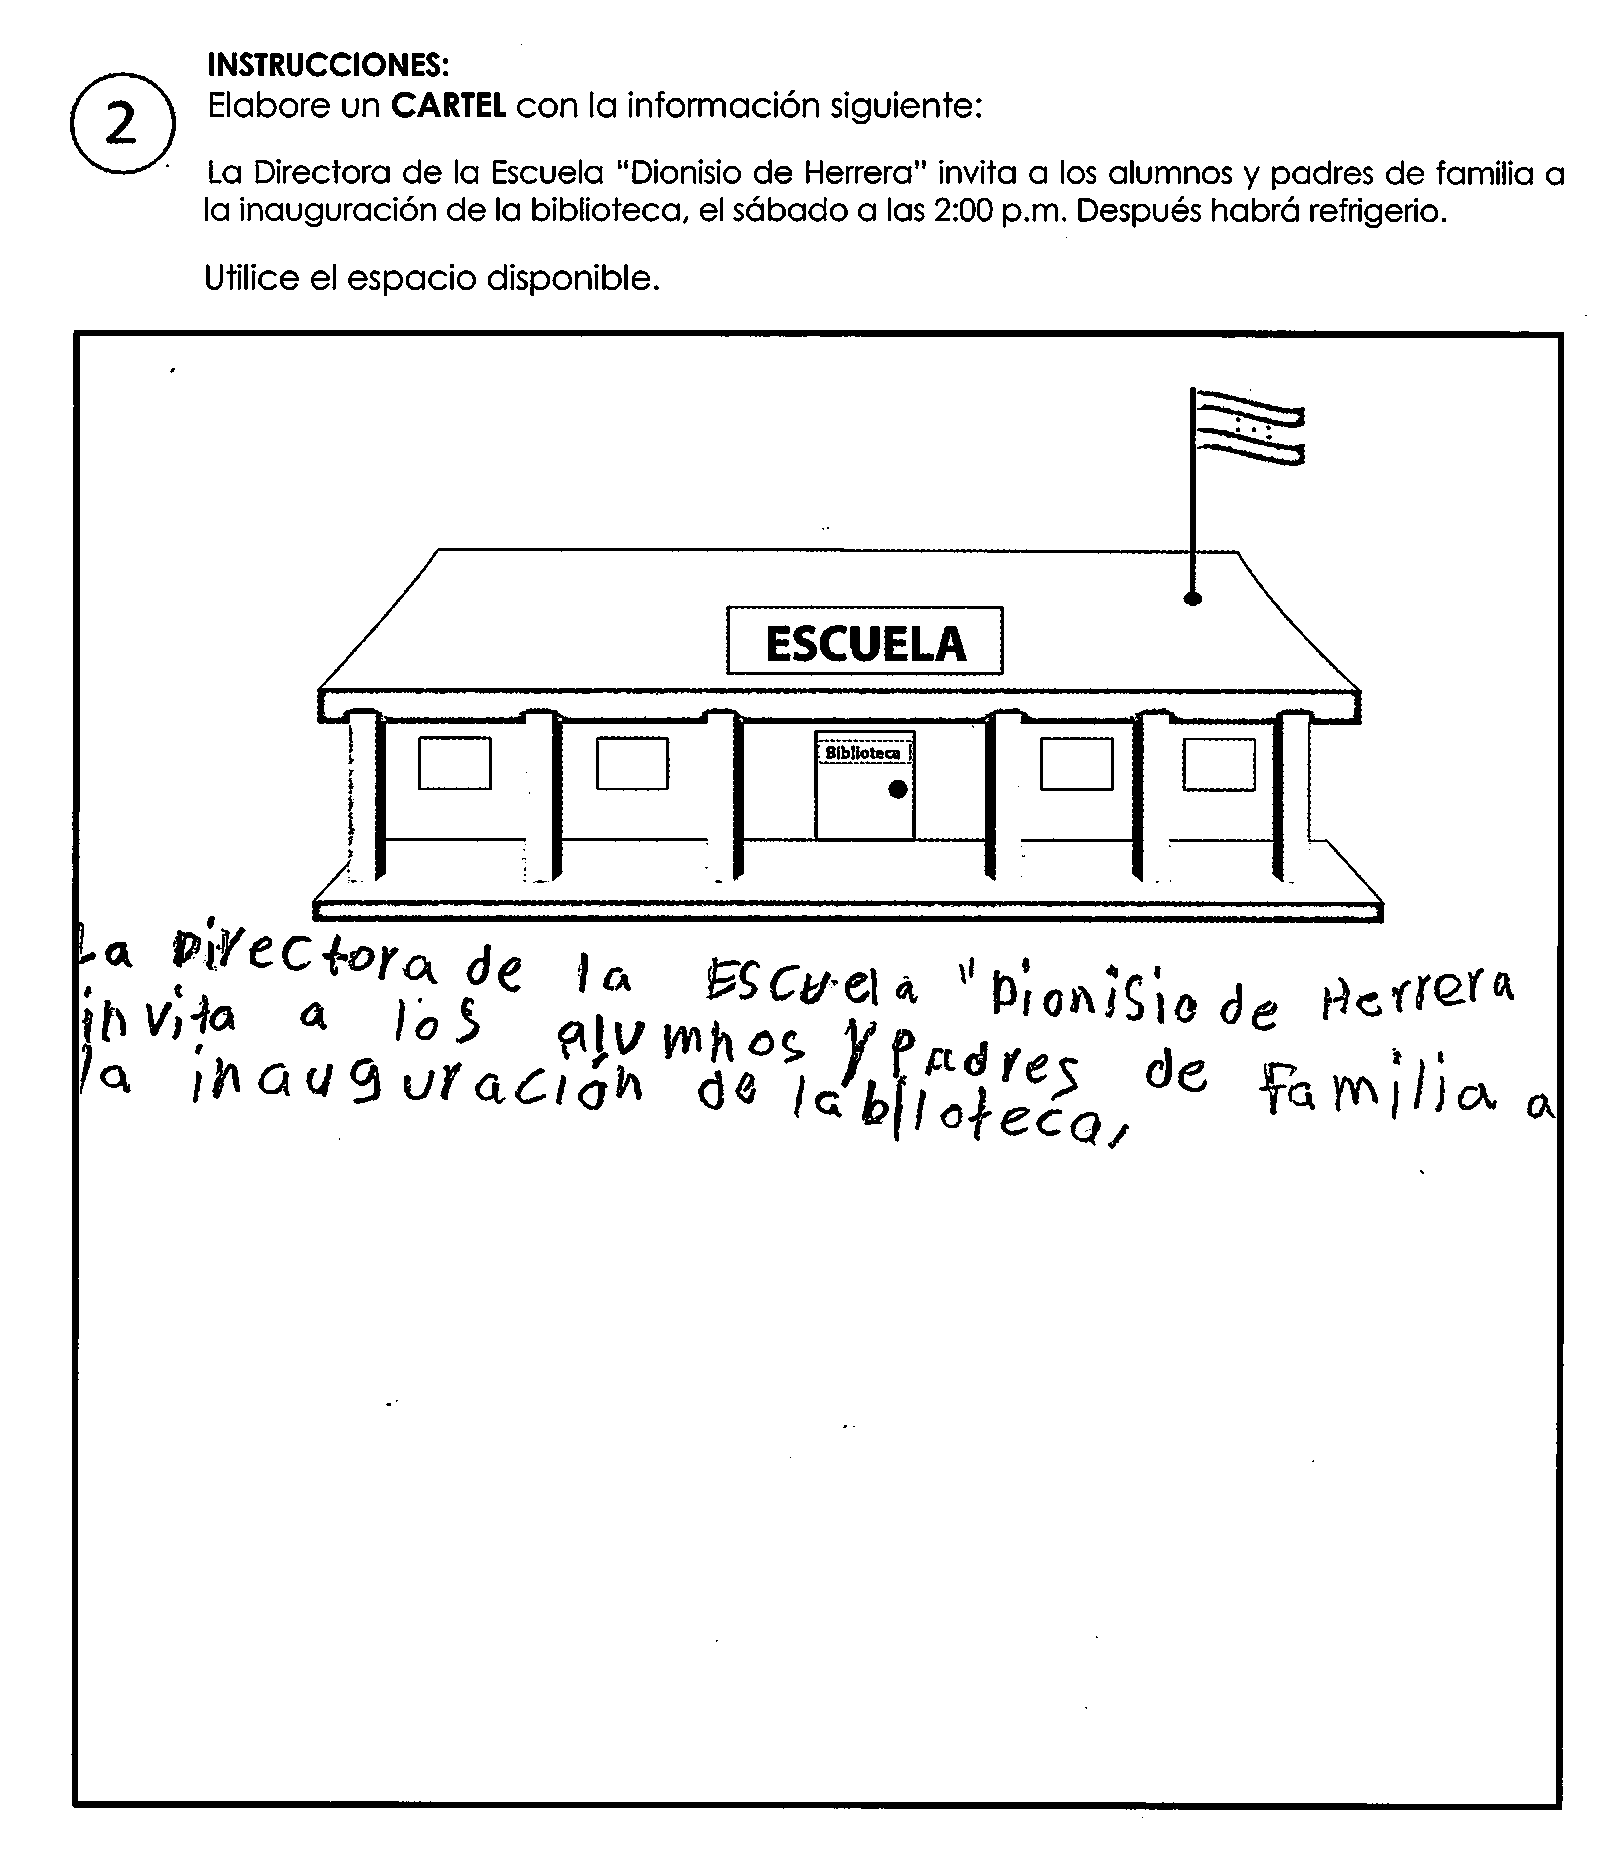 INSTRUCCIONES:
2
Elabore un CARTEL con la información siguiente:
La Directora de la Escuela "Dionisio de Herrera" invita a los alumnos y padres de familia a
la inauguración de la biblioteca, el sábado a las 2:00 p.m. Después habrá refrigerio.
Utilice el espacio disponible.
ESCUELA
Biblioteca
La Directora de la Escuela "Dionisio de Herrera
invita a los alumnos y padres de familia a
la inauguración de la blioteca,